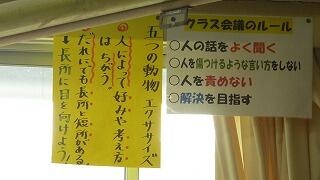 五つの動物 エクササイズ
①人によって好みや考え方
はちがう。
②だれにでも長所と短所がある。
↓長所に目を向けよう！
クラス会議のルール
○人の話をよく聞く
○人を傷つけるような言い方をしない
○人を責めない
○解決を目指す